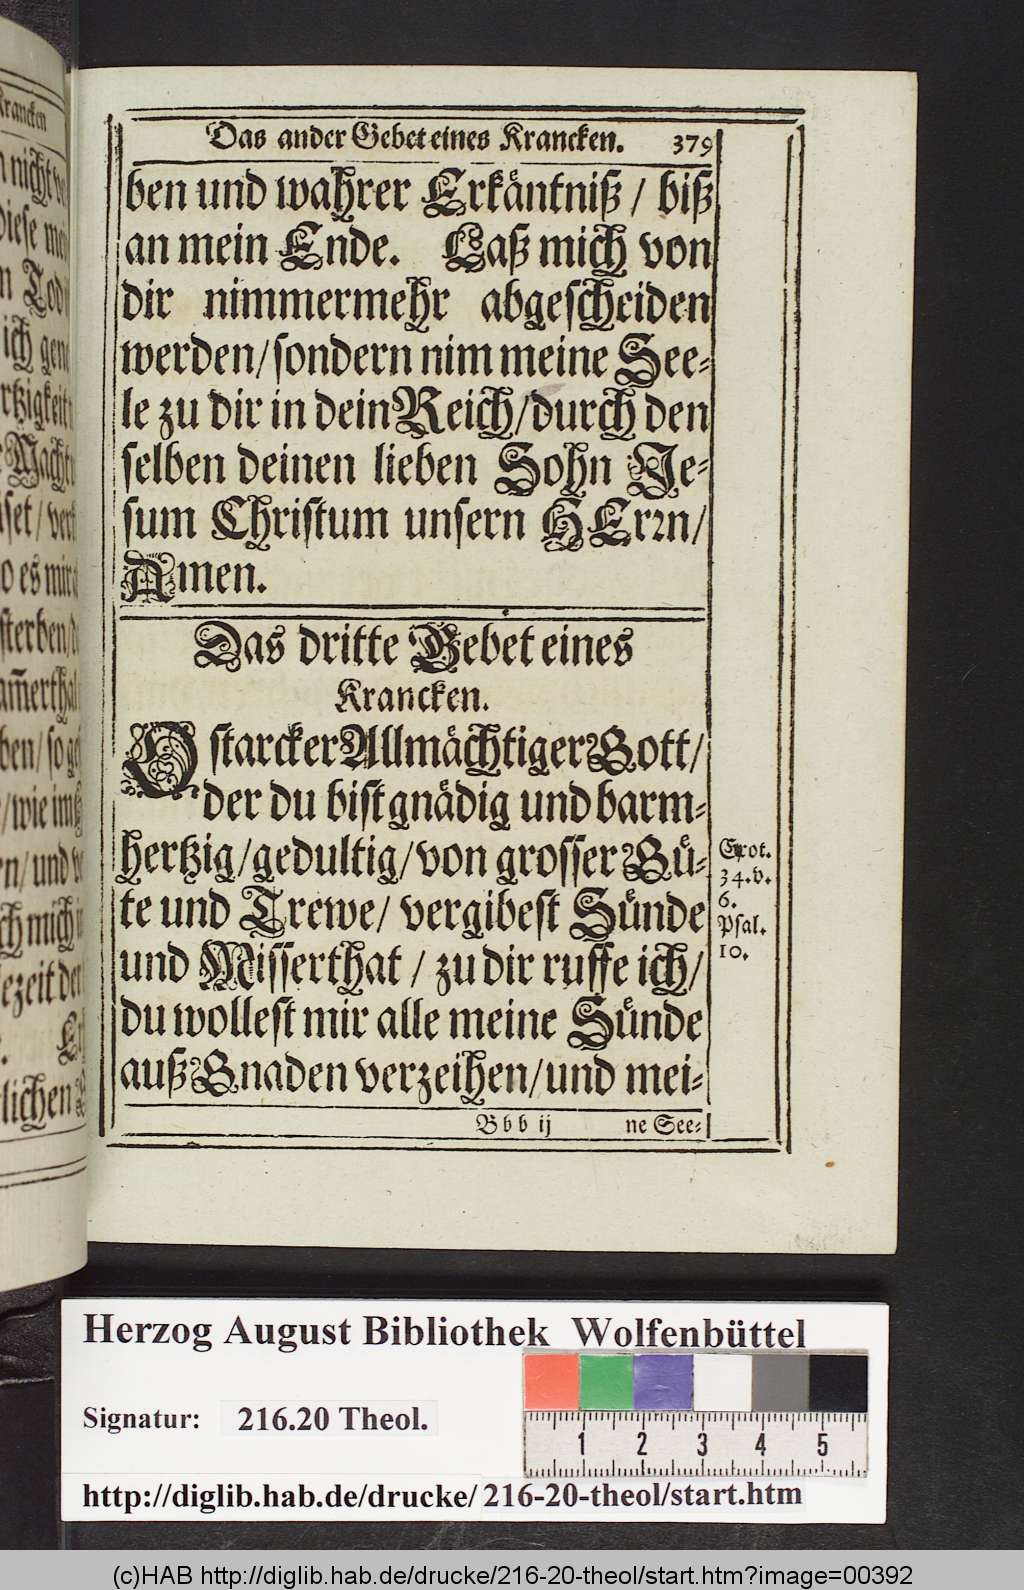 Das ander Gebet eines Krancken. 379
ben und wahrer Erkäntniß / biß
an mein Ende. Laß mich von
dir nimmermehr abgescheiden
werden / sondern nim meine See-
le zu dir in dein Reich / durch den
selben deinen lieben Sohn Je-
sum Christum unsern HErrn /
Amen.
Das dritte Gebet eines
Krancken.
O starcker Allmächtiger Gott /
der du bist gnädig und barm-
hertzig / gedultig / von grosser Gü-
te und Trewe / vergibest Sünde
und Misserthat / zu dir ruffe ich /
du wollest mir alle meine Sünde
auß Gnaden verzeihen / und mei-
Exot.
34. v.
6.
Psal.
10.
Bbb ij ne See-
Krancken
nicht
diese
Tod
ich
Macht
es mir
sterben
wie
und
ch mich
Herzog August Bibliothek Wolfenbüttel
Signatur: 216.20 Theol.
1 2 3 4 5
http://diglib.hab.de/drucke/216-20-theol/start.htm
(c)HAB http://diglib.hab.de/drucke/216-20-theol/start.htm?image=00392